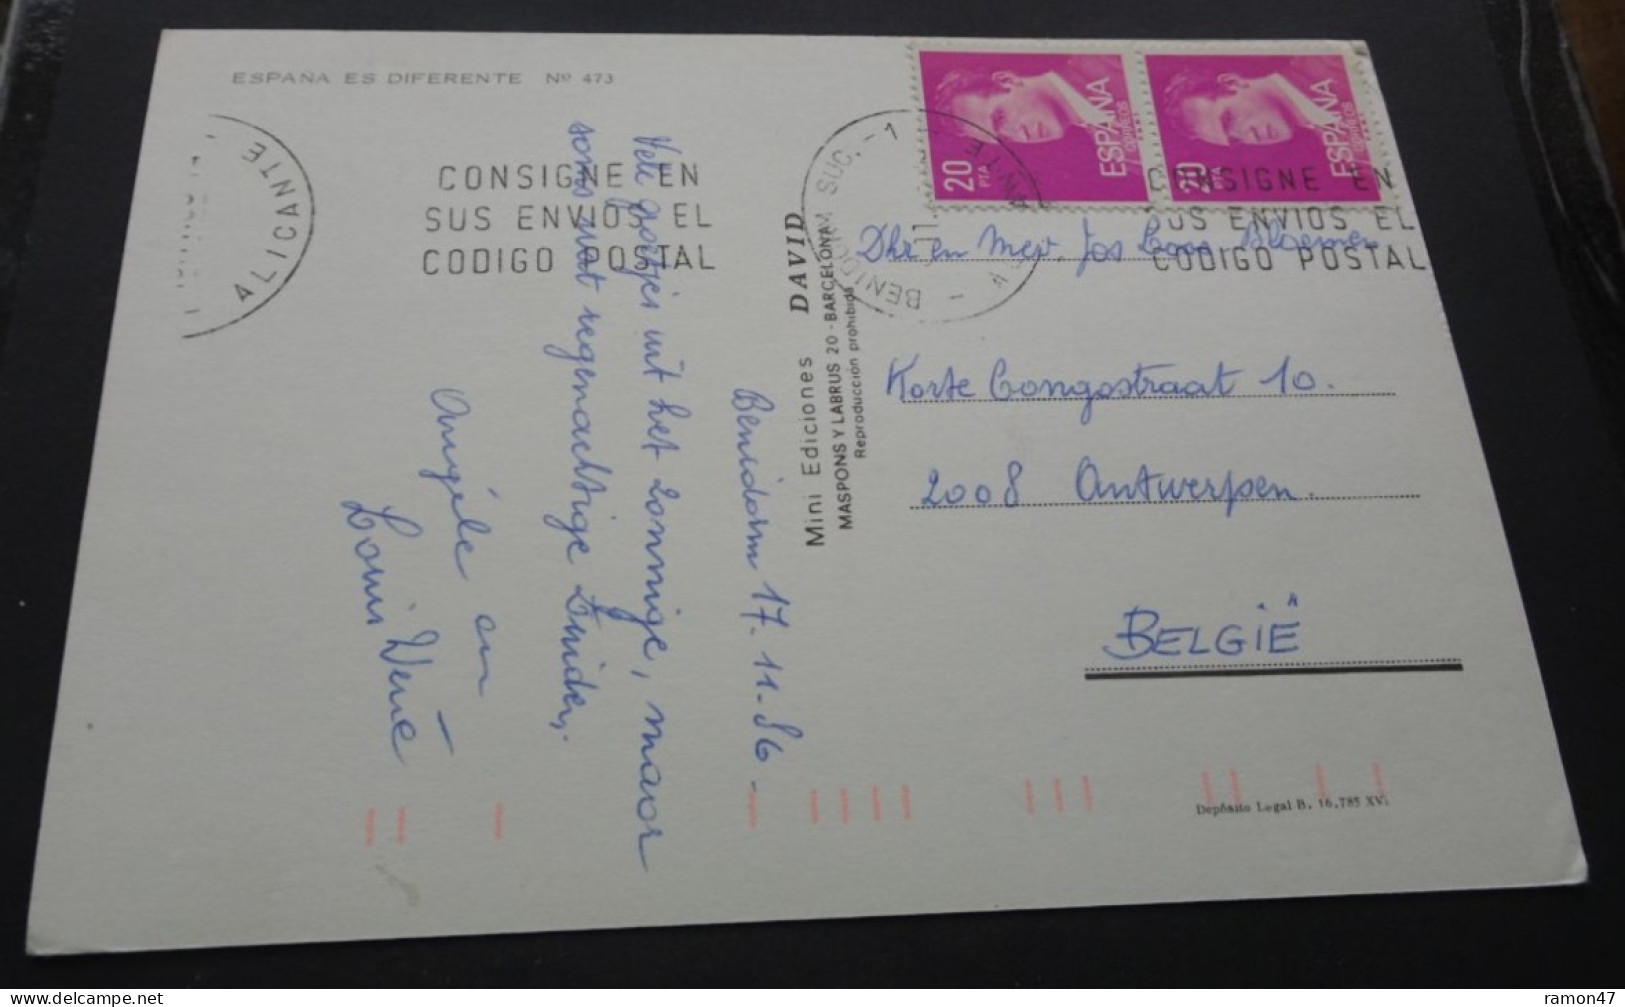 ESPAÑA ES DIFERENTE Nº 473
ALICANTE
CONSIGNE EN
SUS ENVIOS EL
CODIGO POSTAL
Benidorm 17.11.86
Vele groetjes uit het zonnige, maar
soms wat regenachtige
Angèle en
Louis
Mini Ediciones DAVID
MASPONS Y LABRUS 20 - BARCELONA
Reproducción prohibida
BENIDORM SUC. - 1
20 PTA
ESPAÑA
CORREOS
20
ESPAÑA
CORREOS
CONSIGNE EN
SUS ENVIOS EL
CODIGO POSTAL
Dhr en Mev. Jos Bloemen
Korte Congostraat 10.
2008 Antwerpen.
BELGIË
Depósito Legal B. 16,785 XV.
ramon47